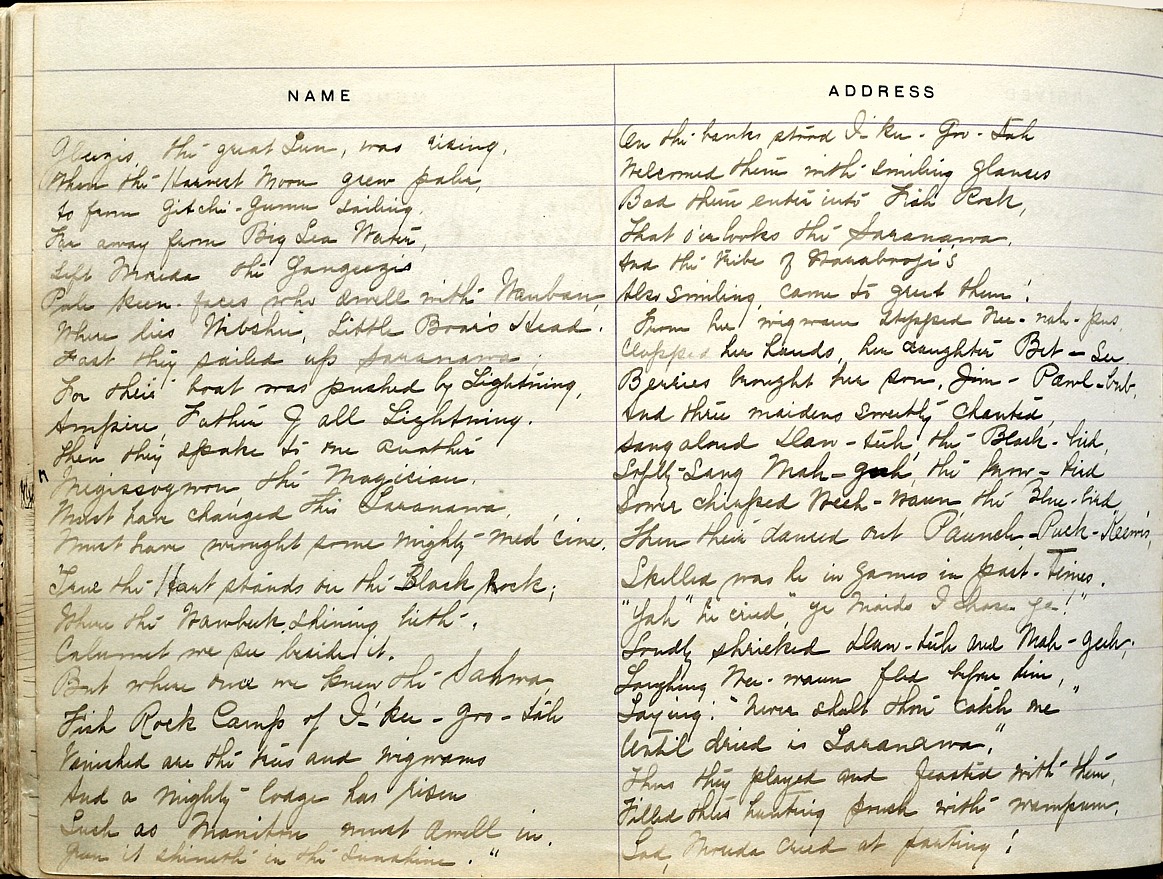 NAME
Gheezis, the great Sun, was rising,
When the Harvest Moon grew paler,
So from Gitchi-Gumu sailing,
Far away from Big Sea Water,
Left the
Pale faces who dwell with Wauban,
Where lies Little Boar's Head.
Fast they sailed up Saranawa
For their boat was pushed by Lightning,
Ampire Father of all Lightning.
Then they spake to one another
Megissogwon, the Magician,
Must have changed this Saranawa,
Must have wrought some mighty med'cine.
True the Hart stands on the Black Rock;
Where the Wawbeek shining lieth,
Calumet we see beside it.
But where once we knew the Sahwa
Fish Rock Camp of I-kee-Goo-Tah
Vanished are the trees and wigwams
And a mighty lodge has risen
Such as Manitou must dwell in.
it shineth in the Sunshine."
ADDRESS
On the banks stood I-kee-Goo-Tah
Welcomed them with smiling glances
Bad them enter into Fish Rock,
That o'erlooks the Saranawa.
And the tribe of
Also smiling, came to greet them!
From her wigwam stepped Nee-nah-
Clapped her hands, her daughter Bet-See
Berries brought her son, Jim-Pawl-bub,
And three maidens sweetly chanted,
Sang aloud the Black-bird,
Softly Sang Mah-geeh, the Snow-bird
Lower chirped the Blue-bird,
Then their danced out Paunch-Puck-Keewis,
Skilled was he in games in past-times.
"Yah" he cried, "ye Maids I chase ye!"
Loudly shrieked and Mah-geeh;
Laughing fled before him,
Saying: "Never shalt thou catch me
Until dried is Saranawa,"
Thus they played and feasted with them,
Filled their hunting pouch with wampum,
Sad, cried at parting!